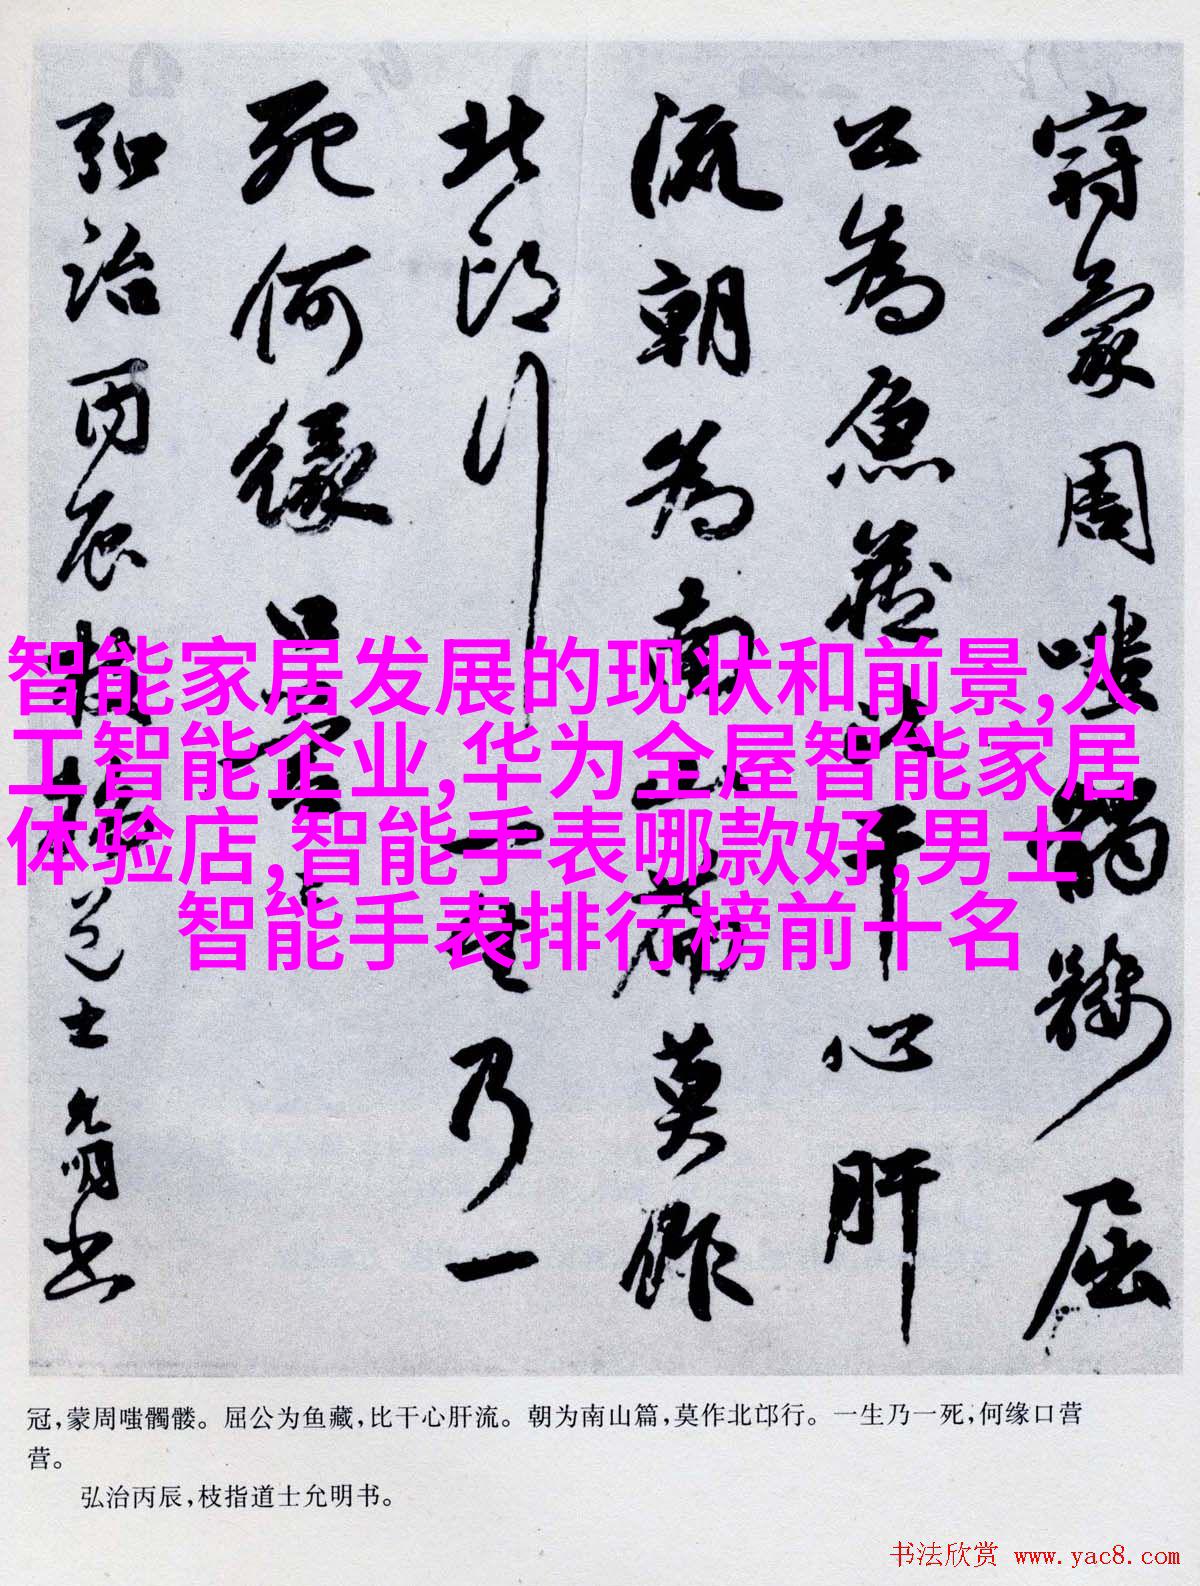 冠蒙周嗤髑髅屈
公为鱼藏比干心肝
流朝为南山篇莫作
北邙行一生乃一
死何缘口营营
弘治丙辰枝指道士允明书
智能家居发展的现状和前景,人
工智能企业,华为全屋智能家居
体验店,智能手表哪款好,男士
智能手表排行榜前十名
冠,蒙周嗤髑髅。屈公为鱼藏,比干心肝流。朝为南山篇,莫作北邙行。一生乃一死,何缘口营
营。
弘治丙辰,枝指道士允明书。
书法欣赏 www.yac8.com